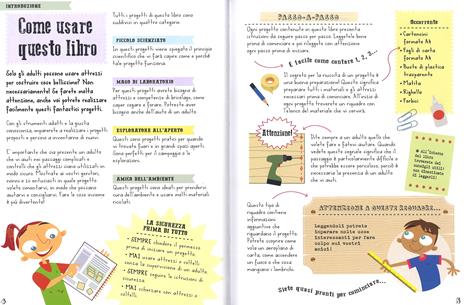 INTRODUZIONE
Come usare
questo libro
Solo gli adulti possono usare attrezzi
per costruire cose bellissime? Non
necessariamente! Se farete molta
attenzione, anche voi potrete realizzare
facilmente questi fantastici progetti.
Con gli strumenti adatti e la giusta
conoscenza, imparerete a realizzare i progetti
proposti e persino a inventarne di nuovi.
È importante che sia presente un adulto
che vi aiuti nei passaggi complicati e
controlli che gli attrezzi siano utilizzati in
modo sicuro. Mostrate ai vostri genitori,
nonni e zii entusiasti in quale progetto
volete cimentarvi, in modo che possano
aiutarvi e consigliarvi. Fare le cose insieme
è più divertente!
Tutti i progetti di questo libro sono
suddivisi in quattro categorie:
PICCOLO SCIENZIATO
In questi progetti viene spiegato il principio
scientifico che vi farà capire come e perché
tale progetto funziona.
MAGO DI LABORATORIO
Per questi progetti avrete bisogno di
attrezzi e competenze di bricolage, come
saper segare e forare. Potreste aver
bisogno anche dell'aiuto di un adulto.
ESPLORATORE ALL'APERTO
Questi sono progetti pratici per quando
vi trovate fuori e in grandi spazi aperti.
Sono perfetti per il campeggio e le
esplorazioni.
AMICO DELL'AMBIENTE
Questi progetti sono ideati per prendersi
cura dell'ambiente e usare molti materiali
riciclati.
LA SICUREZZA
PRIMA DI TUTTO
• SEMPRE chiedere il permesso
prima di iniziare un progetto.
• MAI usare attrezzi o coltelli
senza la supervisione di un adulto.
• SEMPRE seguire le istruzioni
di sicurezza.
• MAI scherzare con attrezzi o
coltelli.
PASSO-A-PASSO
Ogni progetto contenuto in questo libro presenta
istruzioni da seguire passo per passo. Leggetele bene
prima di cominciare e poi rileggete con attenzione
ogni passo prima di iniziare.
È facile come contare 1, 2, 3...
Il segreto per la riuscita di un progetto è
una buona preparazione! Questo significa
preparare tutti i materiali e gli attrezzi
necessari prima di cominciare. All'inizio di
ogni progetto troverete un riquadro con
l'elenco del materiale che vi servirà.
Occorrente
• Cartoncini
formato A4
• Fogli di carta
formato A4
• Buste di plastica
trasparente
• Matita
• Righello
• Forbici
Attenzione!
Dite sempre a un adulto quello che
volete fare e fatevi aiutare. Quando
vedete questo segnale significa che il
passaggio è particolarmente difficile o
che potrebbe essere pericoloso, perciò è
necessaria la presenza di un adulto
che vi aiuti.
Questo tipo di
riquadro contiene
informazioni
aggiuntive che
riguardano il progetto.
Potrete scoprire come
vola un aeroplano di
carta, come accendere
un fuoco e che cosa
mangiano i lombrichi.
ATTENZIONE A QUESTI RIQUADRI...
Leggendoli potrete
imparare molte cose
interessanti per fare
colpo sui vostri
amici!
Siete quasi pronti per cominciare...